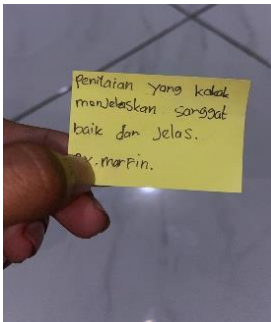 Penilaian yang kakak
menjelaskan sanggat
baik dan Jelas.